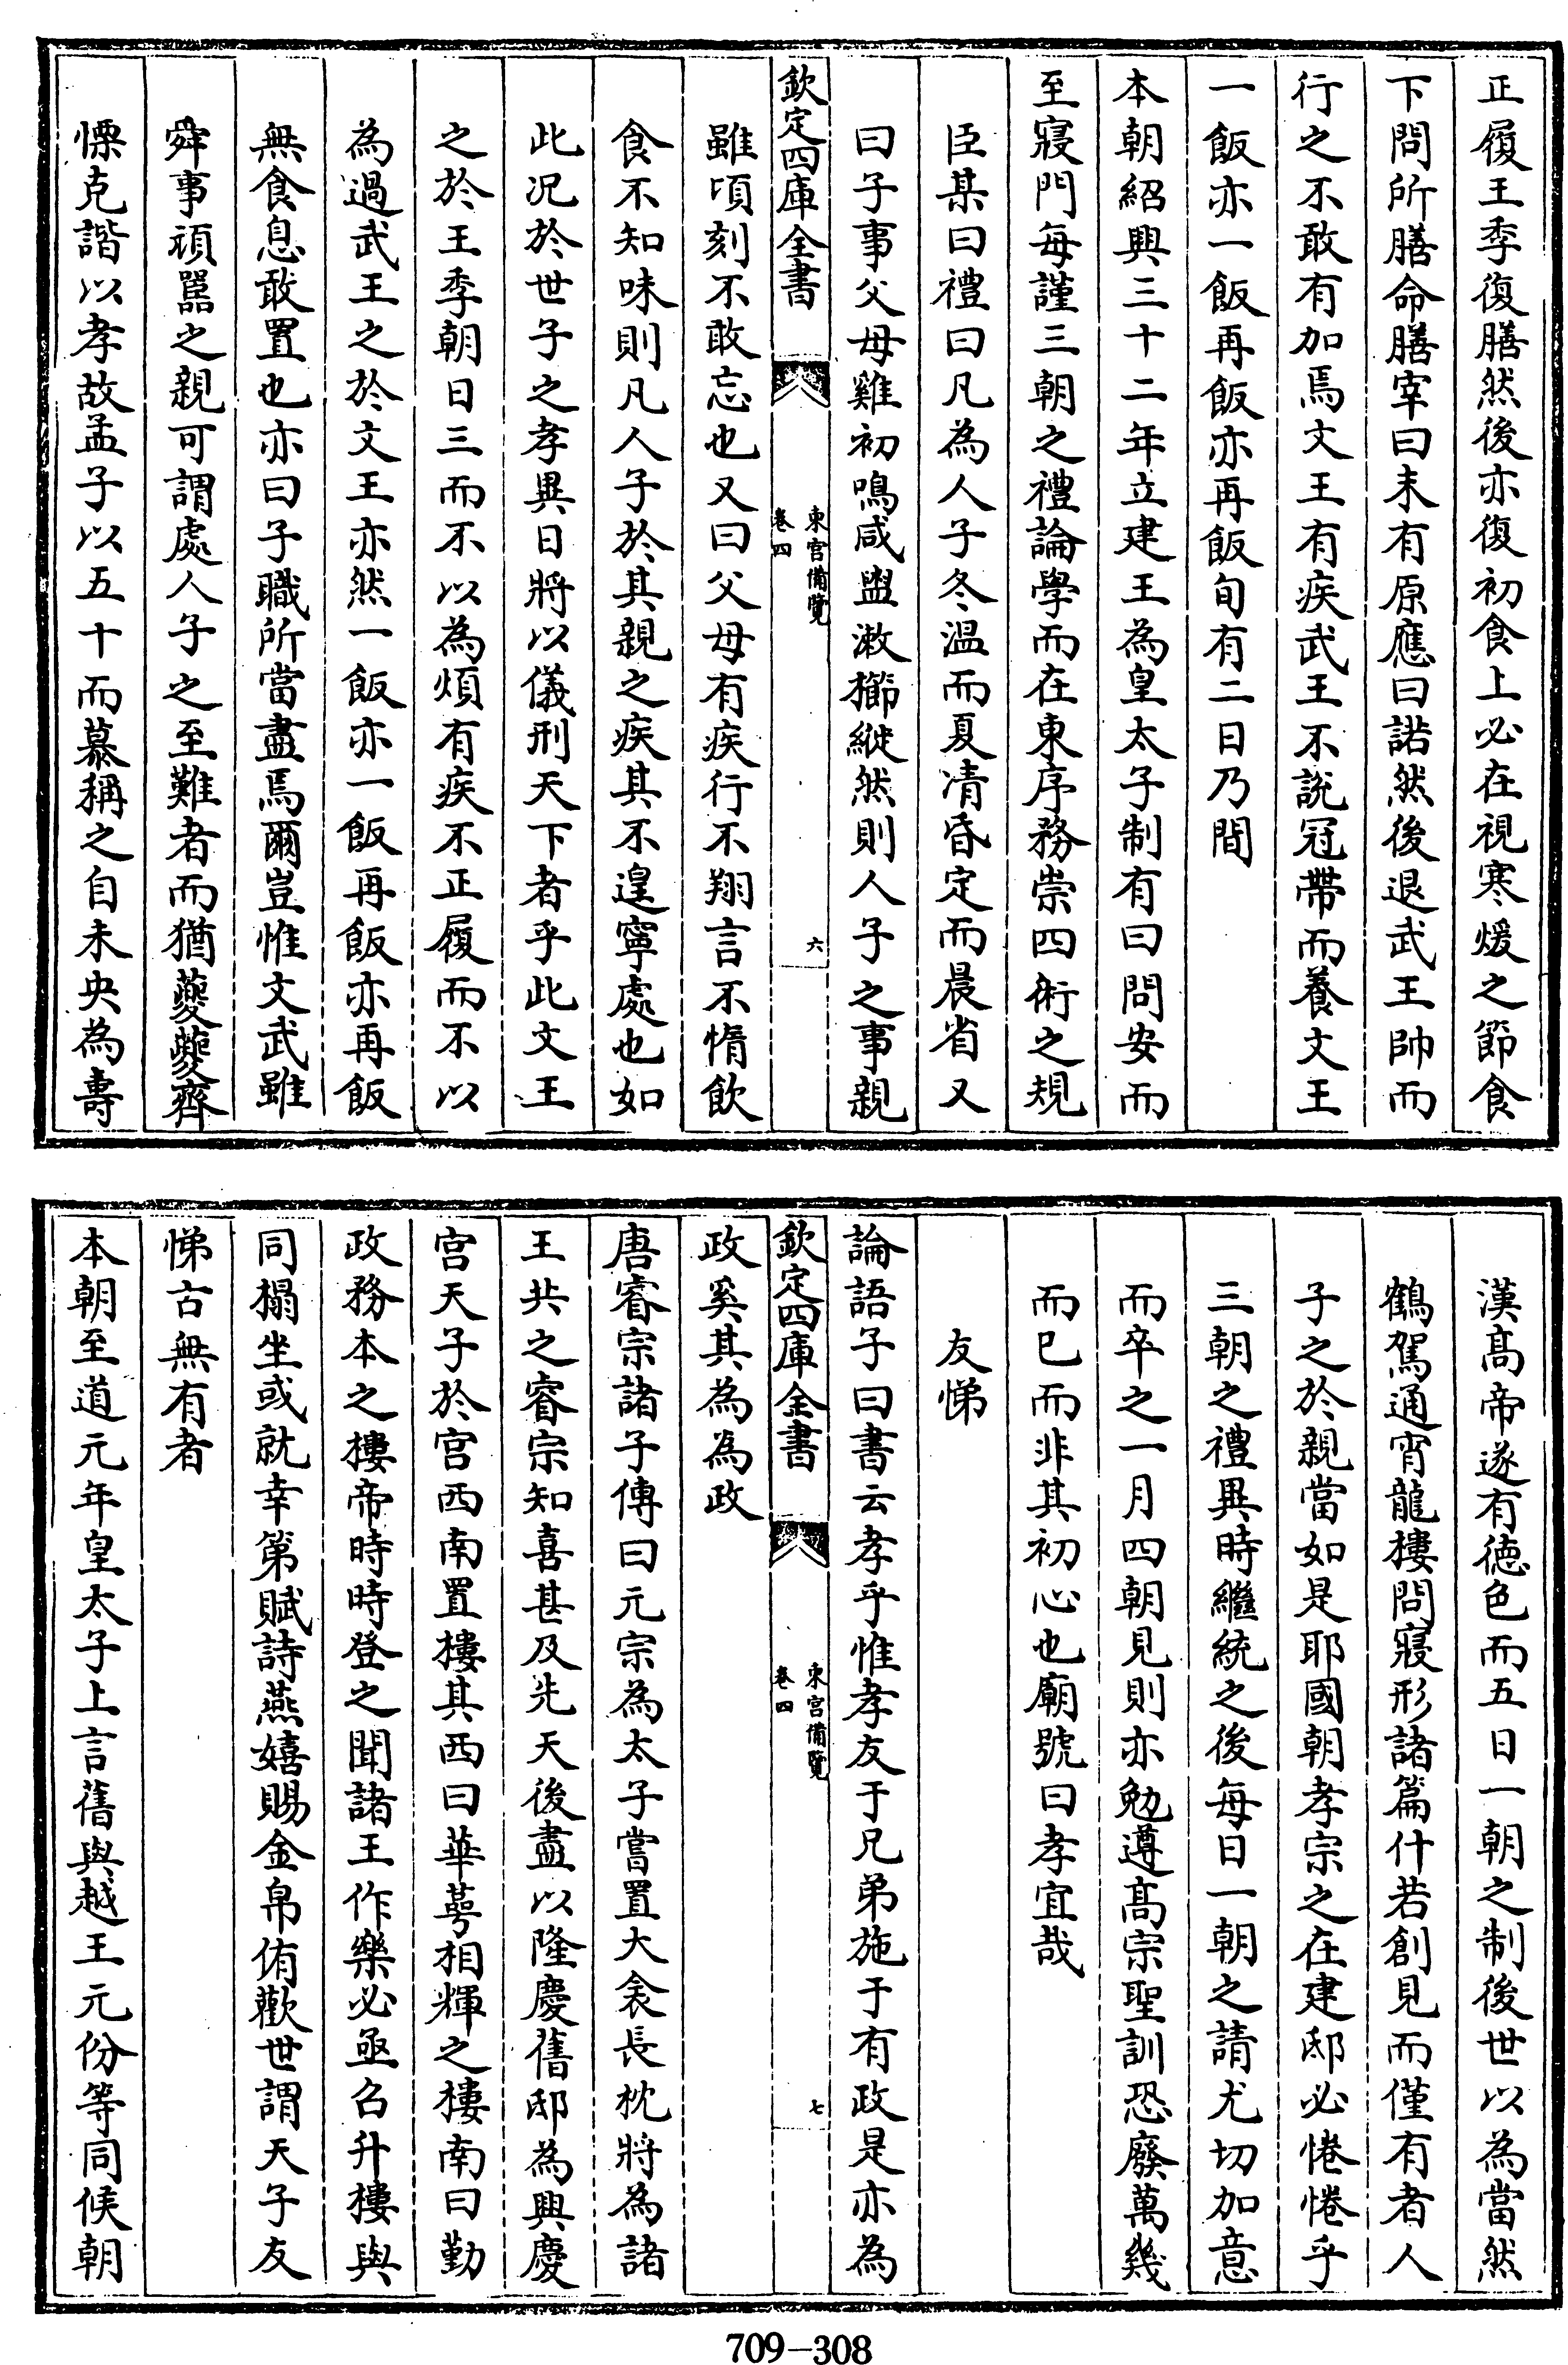 正履王季復膳然後亦復初食上必在視寒煖之節食
下問所膳命膳宰曰末有原應曰諾然後退武王帥而
行之不敢有加焉文王有疾武王不說冠帶而養文王
一飯亦一飯再飯亦再飯旬有二日乃間
本朝紹興三十二年立建王為皇太子制有曰問安而
至寢門每謹三朝之禮論學而在東序務崇四術之規
臣某曰禮曰凡為人子冬溫而夏凊昏定而晨省又
曰子事父母雞初鳴咸盥漱櫛縰然則人子之事親
欽定四庫全書
東宮備覽
卷四
六
雖頃刻不敢忘也又曰父母有疾行不翔言不惰飲
食不知味則凡人子於其親之疾其不遑寧處也如
此況於世子之孝異日將以儀刑天下者乎此文王
之於王季朝日三而不以為煩有疾不正履而不以
為過武王之於文王亦然一飯亦一飯再飯亦再飯
無食息敢置也亦曰子職所當盡焉爾豈惟文武雖
舜事頑嚚之親可謂處人子之至難者而猶夔夔齊
慄克諧以孝故孟子以五十而慕稱之自未央為壽
漢髙帝遂有德色而五日一朝之制後世以為當然
鶴駕通宵龍樓問寢形諸篇什若創見而僅有者人
子之於親當如是耶國朝孝宗之在建邸必惓惓乎
三朝之禮異時繼統之後每日一朝之請尤切加意
而卒之一月四朝見則亦勉遵髙宗聖訓恐廢萬幾
而已而非其初心也廟號曰孝宜哉
友悌
論語子曰書云孝乎惟孝友于兄弟施于有政是亦為
欽定四庫全書
東宮備覽
卷四
七
政奚其為為政
唐睿宗諸子傳曰元宗為太子嘗置大衾長枕將為諸
王共之睿宗知喜甚及先天後盡以隆慶舊邸為興慶
宮天子於宮西南置樓其西曰華蕚相輝之樓南曰勤
政務本之樓帝時時登之聞諸王作樂必亟召升樓與
同榻坐或就幸第賦詩燕嬉賜金帛侑歡世謂天子友
悌古無有者
本朝至道元年皇太子上言舊與越王元份等同候朝
709-308